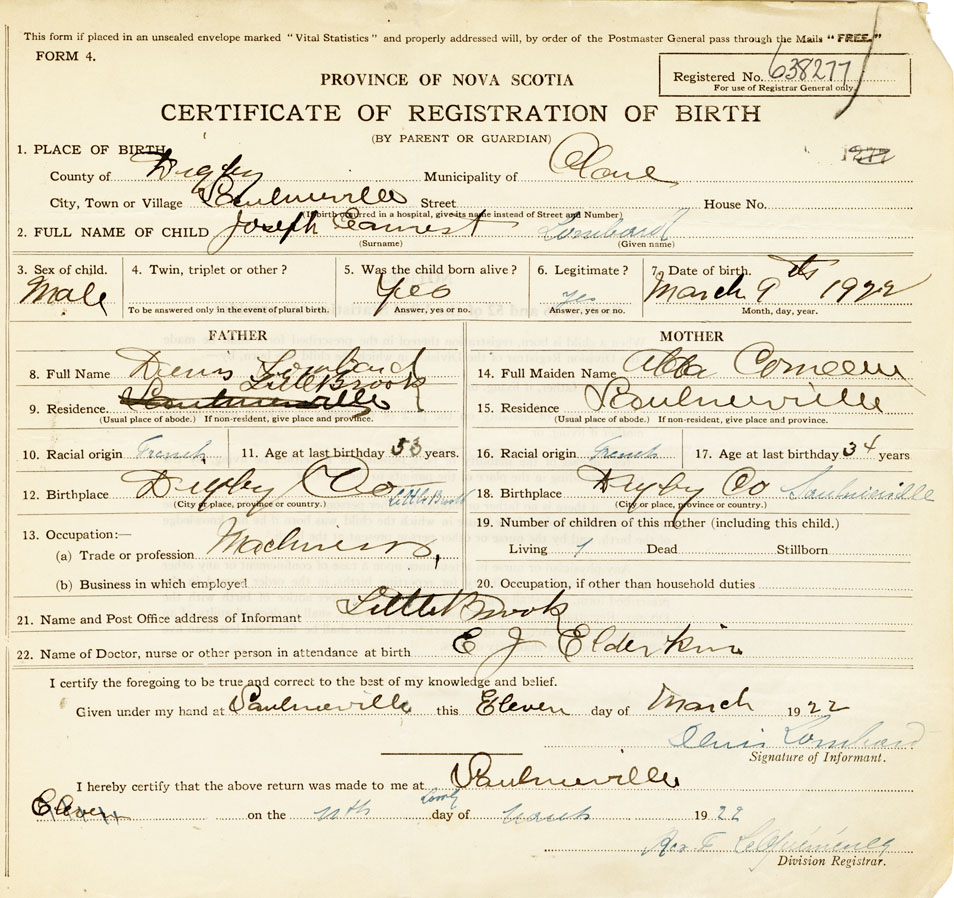 This form if placed in an unsealed envelope marked "Vital Statistics" and properly addressed will, by order of the Postmaster General pass through the Mails "FREE."
FORM 4.
Registered No. 638277
For use of Registrar General only.
PROVINCE OF NOVA SCOTIA
CERTIFICATE OF REGISTRATION OF BIRTH
(BY PARENT OR GUARDIAN)
1. PLACE OF BIRTH
County of Digby Municipality of Clare
City, Town or Village Saulnierville Street House No.
(If birth occurred in a hospital, give its name instead of Street and Number)
2. FULL NAME OF CHILD Joseph Earnest Lombard
(Surname) (Given name)
3. Sex of child. Male
4. Twin, triplet or other?
To be answered only in the event of plural birth.
5. Was the child born alive? Yes
Answer, yes or no.
6. Legitimate? Yes
Answer, yes or no.
7. Date of birth. March 9th 1922
Month, day, year.
FATHER
8. Full Name Denis Lombard
Little Brook
9. Residence. Saulnierville
(Usual place of abode.) If non-resident, give place and province.
10. Racial origin French 11. Age at last birthday 53 years.
12. Birthplace Digby Co Little Brook
(City or place, province or country.)
13. Occupation:—
(a) Trade or profession
(b) Business in which employed
MOTHER
14. Full Maiden Name Abba Comeau
15. Residence Saulnierville
(Usual place of abode.) If non-resident, give place and province.
16. Racial origin French 17. Age at last birthday 34 years
18. Birthplace Digby Co Saulnierville
(City or place, province or country.)
19. Number of children of this mother (including this child.)
Living 7 Dead Stillborn
20. Occupation, if other than household duties
21. Name and Post Office address of Informant Little Brook
22. Name of Doctor, nurse or other person in attendance at birth E J Elderkin
I certify the foregoing to be true and correct to the best of my knowledge and belief.
Given under my hand at Saulnierville this Eleven day of March 1922
Denis Lombard
Signature of Informant.
I hereby certify that the above return was made to me at Saulnierville
Eleven on the 11th day of March 1922
Division Registrar.